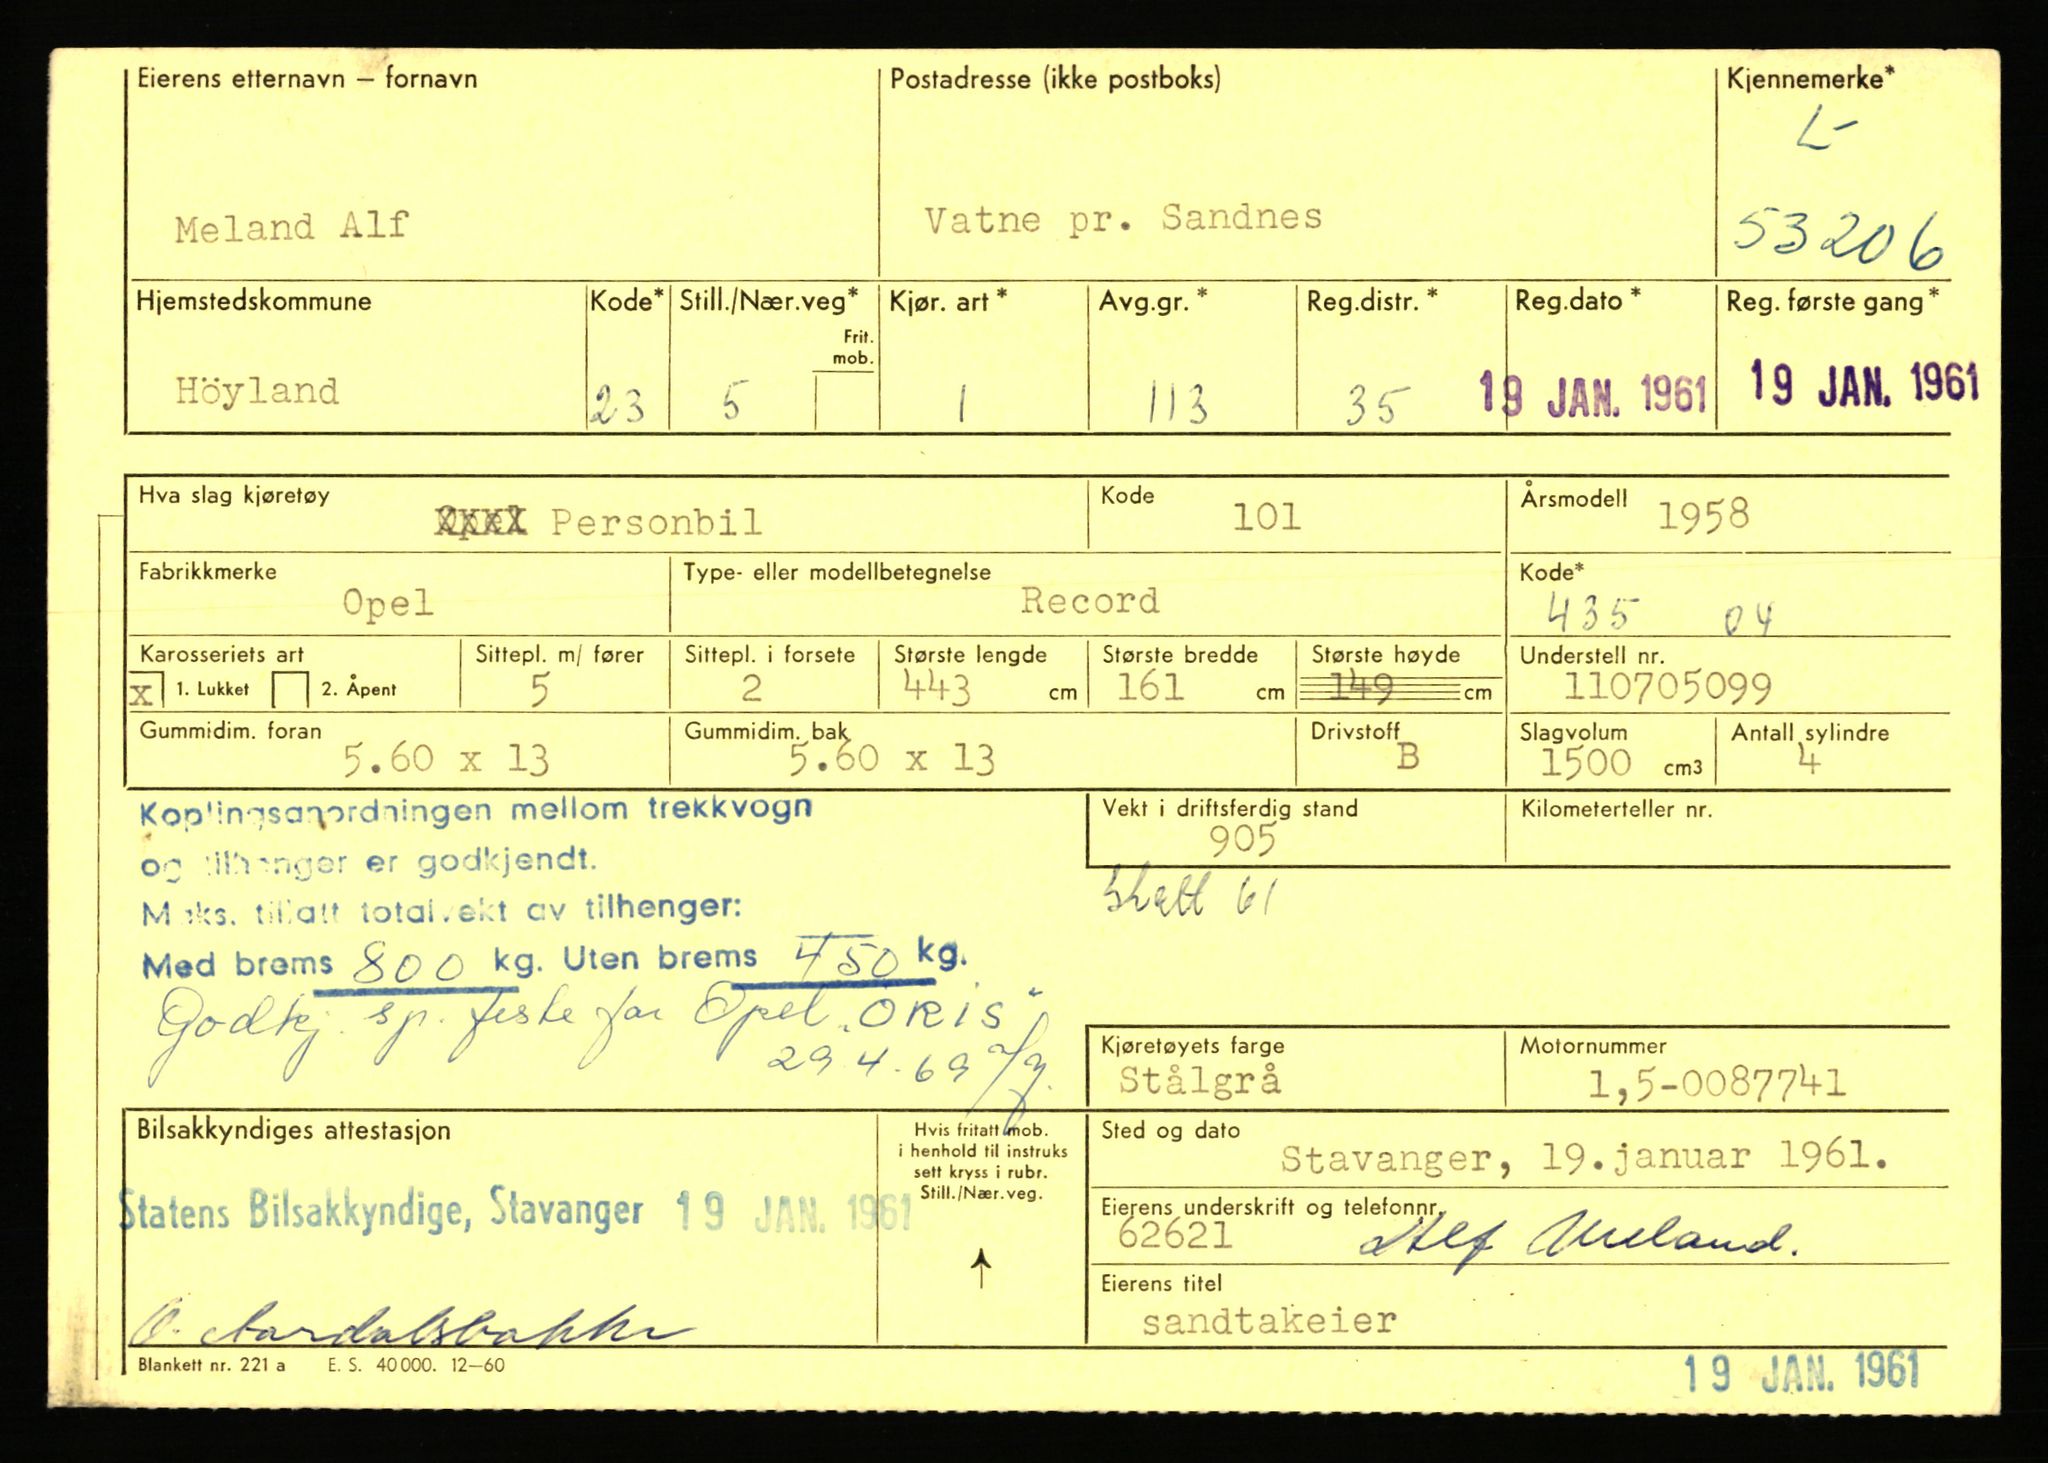 Eierens etternavn – fornavn
Postadresse (ikke postboks)
Kjennemerke*
L-
Meland Alf
Vatne pr. Sandnes
53206
Hjemstedskommune
Kode*
Still./Nær.veg*
Frit. mob.
Kjør. art*
Avg.gr.*
Reg.distr.*
Reg.dato*
Reg. første gang*
Höyland
23
5
1
113
35
19 JAN. 1961
19 JAN. 1961
Hva slag kjøretøy
Personbil
Kode
101
Årsmodell
1958
Fabrikkmerke
Opel
Type- eller modellbetegnelse
Record
Kode*
435 04
Karosseriets art
x 1. Lukket 2. Åpent
Sittepl. m/ fører
5
Sittepl. i forsete
2
Største lengde
443 cm
Største bredde
161 cm
Største høyde
149 cm
Understell nr.
110705099
Gummidim. foran
5.60 x 13
Gummidim. bak
5.60 x 13
Drivstoff
B
Slagvolum
1500 cm3
Antall sylindre
4
Koplingsanordningen mellom trekkvogn
og tilhenger er godkjendt.
Maks. tillatt totalvekt av tilhenger:
Med brems 800 kg. Uten brems 450 kg.
Godkj. sp. feste for Opel „ORIS"
29.4.69
Vekt i driftsferdig stand
905
Kilometerteller nr.
61
Kjøretøyets farge
Stålgrå
Motornummer
1,5-0087741
Bilsakkyndiges attestasjon
Statens Bilsakkyndige, Stavanger 19 JAN. 1961
Hvis fritatt mob.
i henhold til instruks
sett kryss i rubr.
Still./Nær.veg.
Sted og dato
Stavanger, 19.januar 1961.
Eierens underskrift og telefonnr.
62621 Alf Meland.
Eierens titel
sandtakeier
Blankett nr. 221 a E. S. 40000. 12–60
19 JAN. 1961